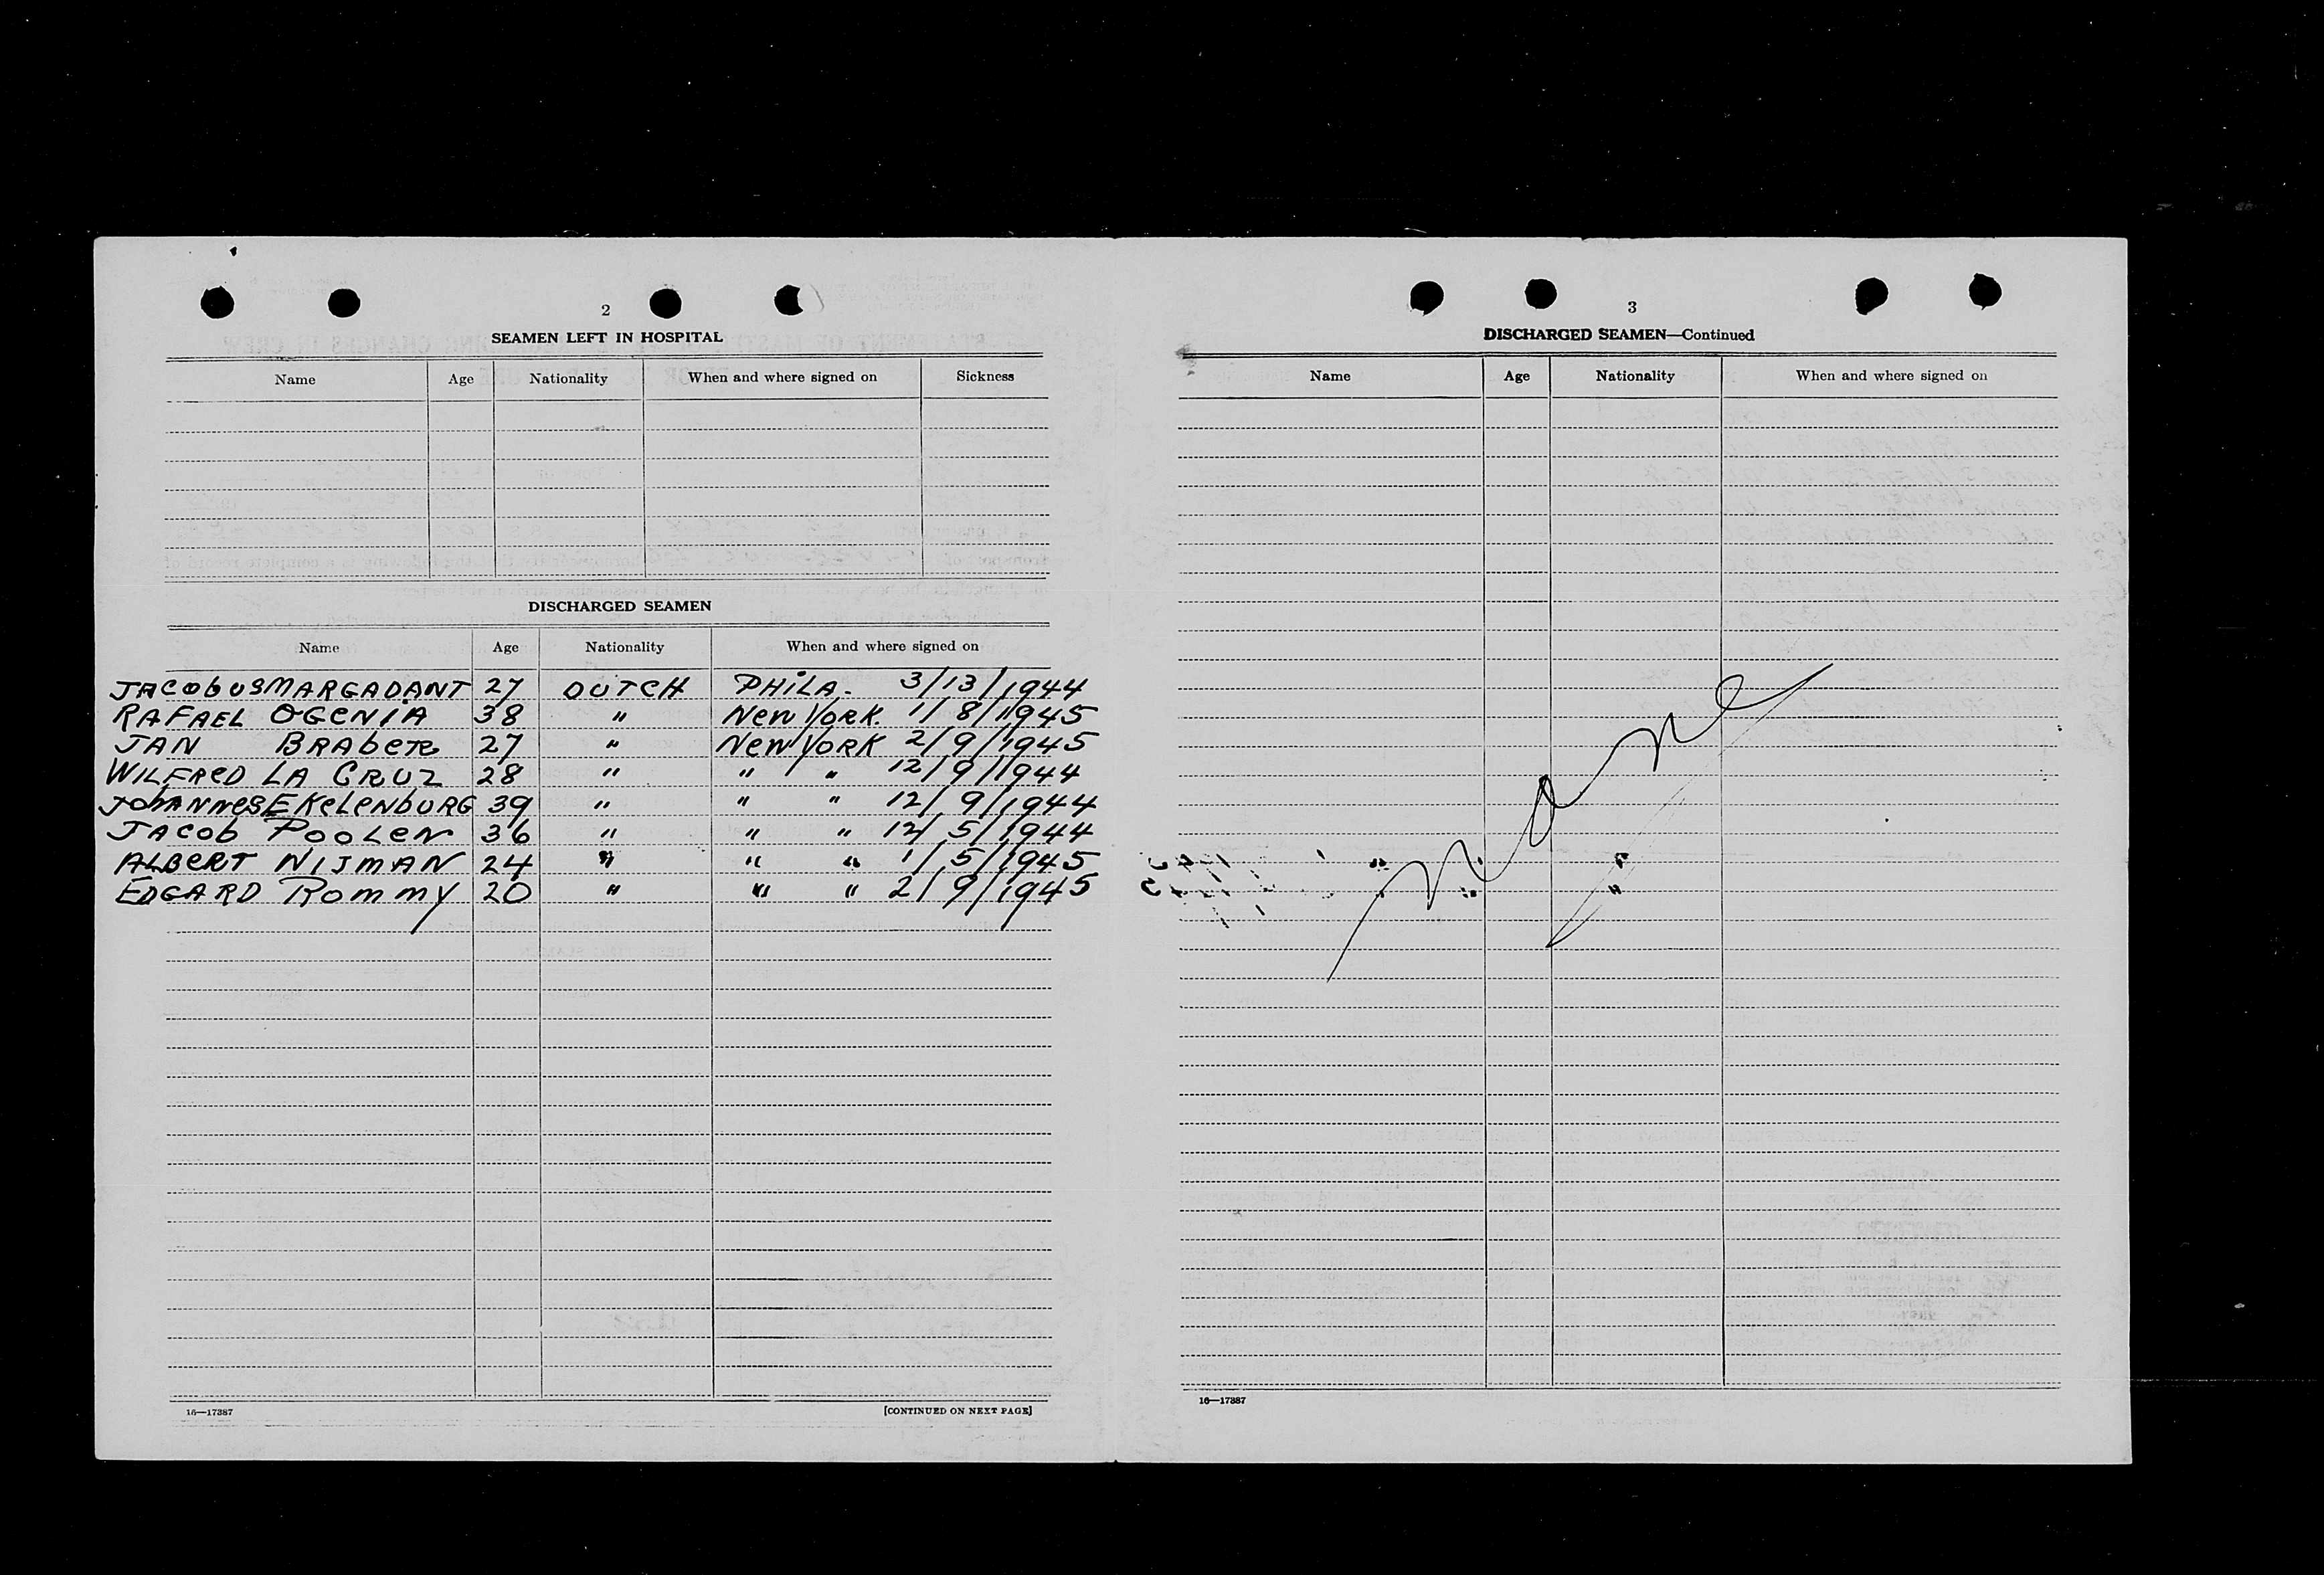 2
SEAMEN LEFT IN HOSPITAL
Name Age Nationality When and where signed on Sickness
DISCHARGED SEAMEN
Name Age Nationality When and where signed on
JACOBUS MARGADANT 27 DUTCH PHILA. 3/13/1944
RAFAEL OGENIA 38 " NEW YORK. 1/8/1945
JAN BRABER 27 " NEW YORK 2/9/1945
WILFRED LA CRUZ 28 " " " 12/9/1944
JOHANNES EKELENBURG 39 " " " 12/9/1944
JACOB POOLEN 36 " " " 12/5/1944
ALBERT NIJMAN 24 " " " 1/5/1945
EDGARD ROMMY 20 " " " 2/9/1945
16—17387 [CONTINUED ON NEXT PAGE]
3
DISCHARGED SEAMEN—Continued
Name Age Nationality When and where signed on
None
16—17387